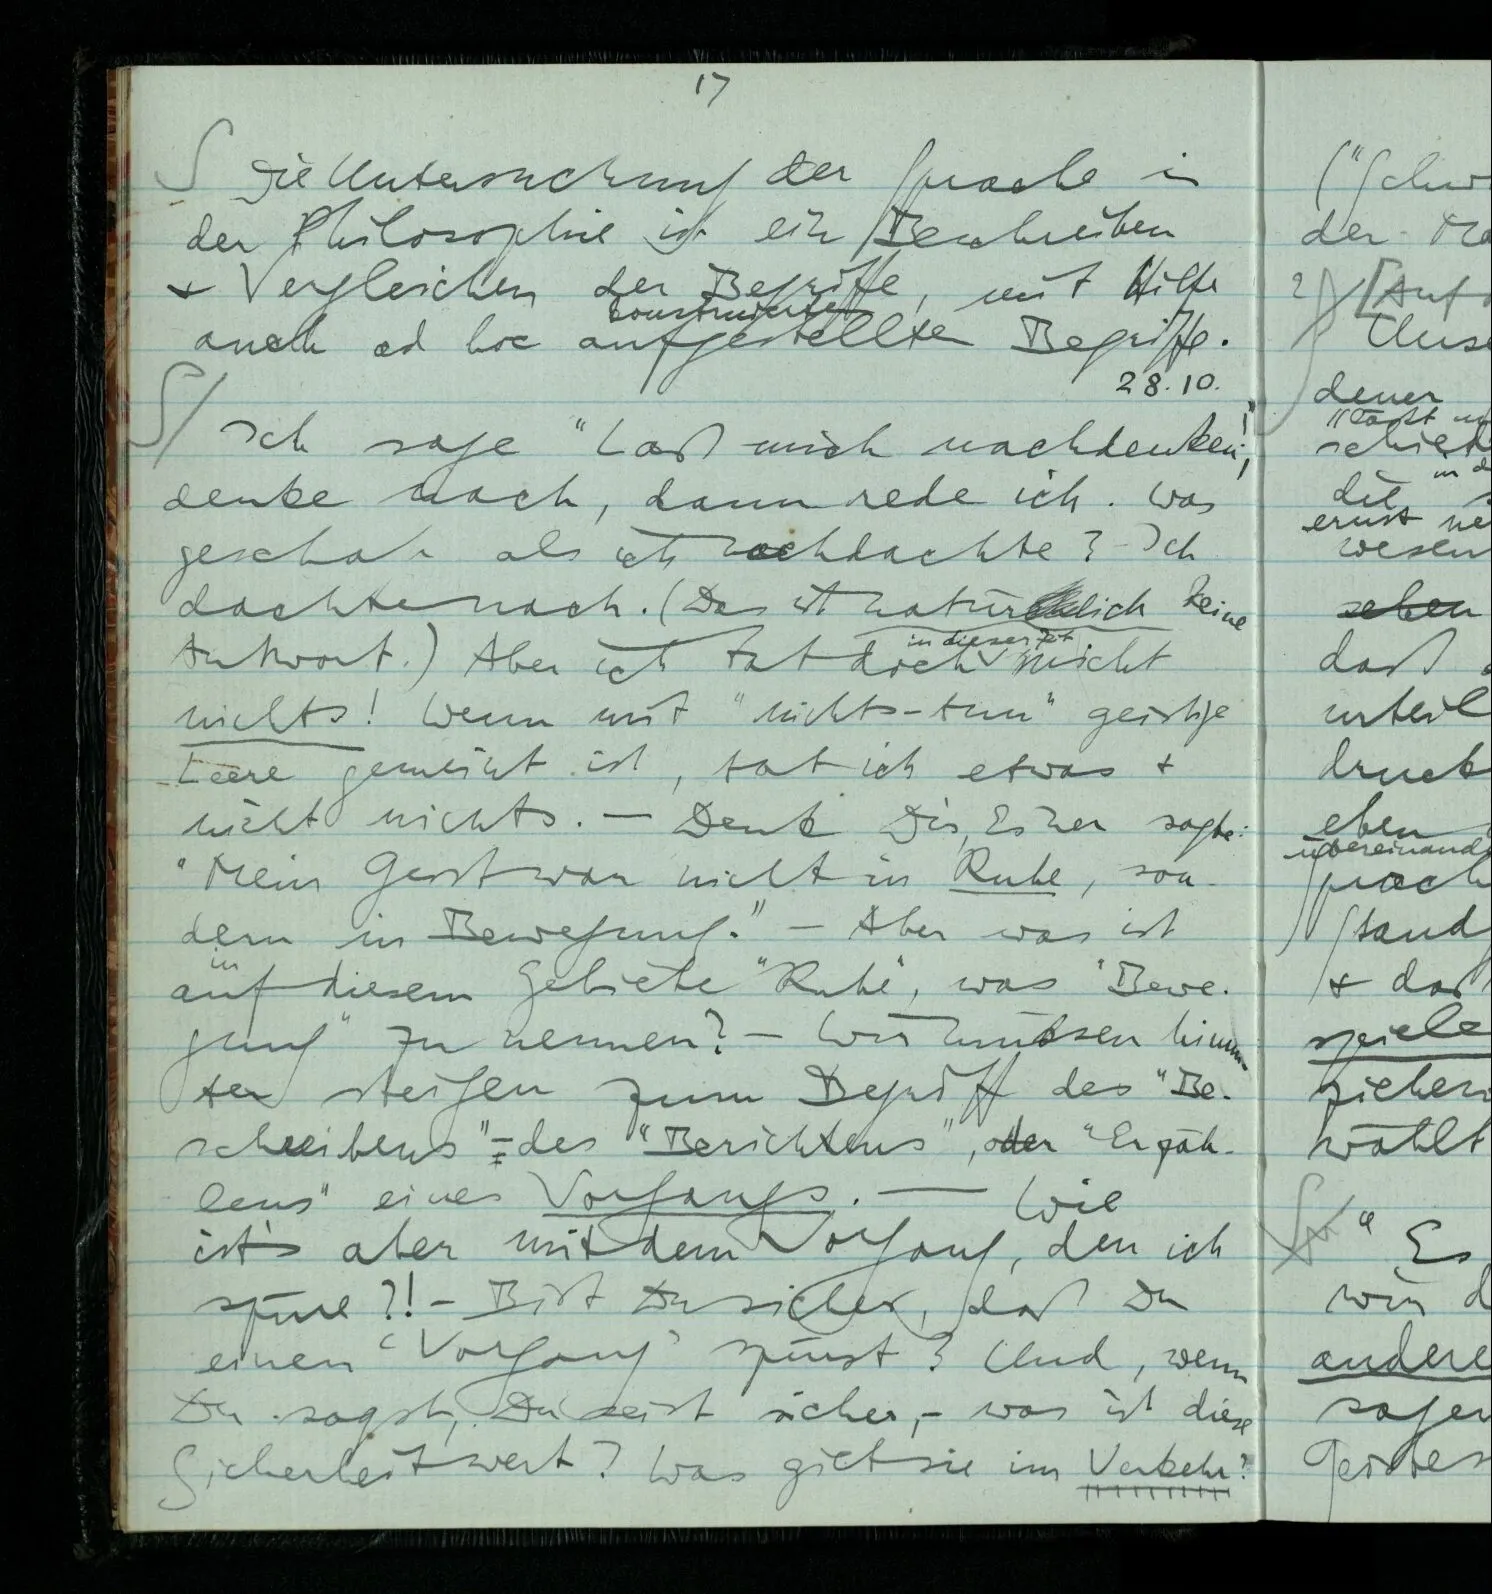 17
∫ Die Untersuchung der Sprache in
der Philosophie ist ein Beschreiben
& Vergleichen der Begriffe, mit Hilfe
konstruierter
auch ad hoc aufgestellter Begriffe.
28.10.
∫/ Ich sage "Laß mich nachdenken!",
denke nach, dann rede ich. Was
geschah als ich nachdachte? – Ich
dachte nach. (Das ist natürlich keine
Antwort.) Aber ich tat doch in dieser Zeit nicht
nichts! Wenn mit "nichts-tun" geistige
Leere gemeint ist, tat ich etwas &
nicht nichts. – Denk Dir, Einer sagte:
"Mein Geist war nicht in Ruhe, son-
dern in Bewegung." – Aber was ist
in
auf diesem Gebiete "Ruhe", was "Bewe-
gung" zu nennen? – Wir müssen hinun-
ter steigen zum Begriff des "Be-
schreibens", des "Berichtens", oder "Erzäh-
lens" eines Vorgangs. — Wie
ist's aber mit dem Vorgang, den ich
spüre?! – Bist Du sicher, daß Du
einen 'Vorgang' spürst? Und, wenn
Du sagst, Du seist sicher, – was ist diese
Sicherheit wert? Was gilt sie im Verkehr?
("Schw
der
? ∫ /[Auf
Unse
denen
schied
die
ernst
wesen
sehen
daß
urteil
druck
eben
übereinand
Sprach
stand
& daß
spiele
ziehen
wählt
" Es
wir d
andere
sagen
Geistes